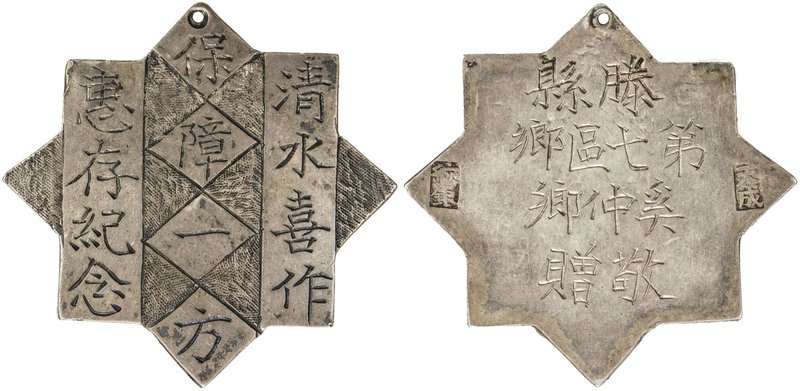 清水喜作
保障一方
惠存紀念
滕縣
第七區鄉
奚仲卿
敬贈
天成